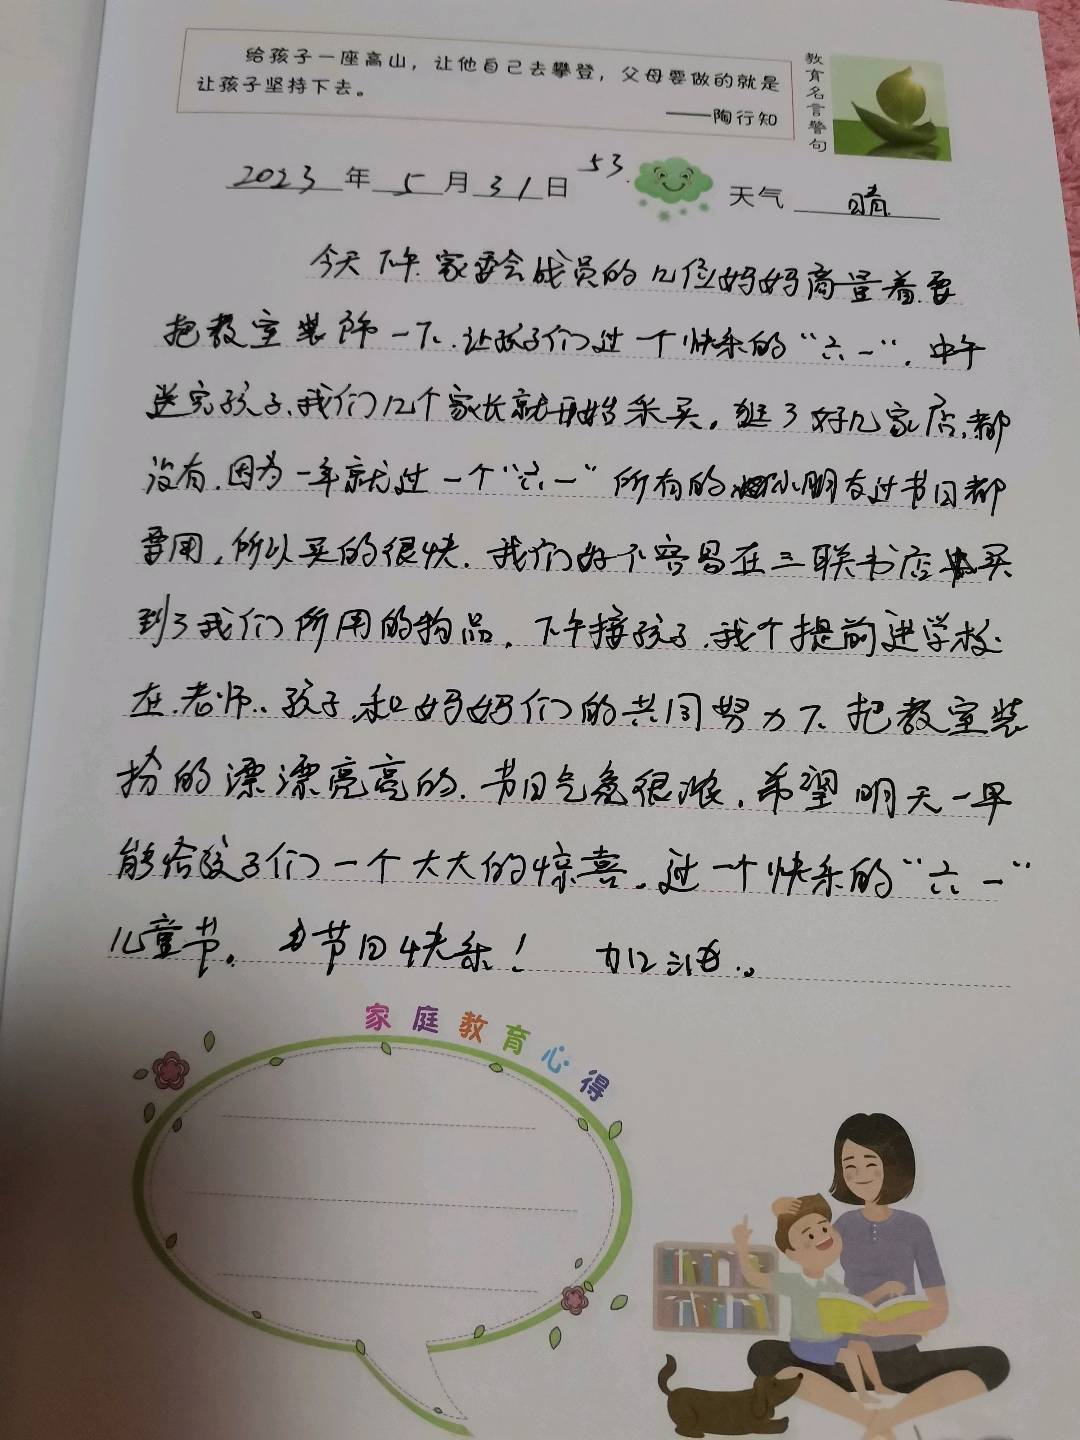 给孩子一座高山，让他自己去攀登，父母要做的就是
让孩子坚持下去。
——陶行知
教育名言警句
2023年5月31日 53. 天气 晴
今天下午家委会成员的几位妈妈商量着要
把教室装饰一下.让孩子们过一个快乐的“六一”.中午
送完孩子.我们几个家长就开始采买.逛了好几家店.都
没有.因为一年就过一个“六一”所有的小朋友过节日都
要用,所以买的很快.我们好不容易在三联书店买
到了我们所用的物品.下午接孩子.我个提前进学校.
在.老师..孩子.和妈妈们的共同努力下.把教室装
扮的漂漂亮亮的.节日气氛很浓.希望明天一早
能给孩子们一个大大的惊喜.过一个快乐的“六一”
儿童节。节日快乐! 加油.。
家庭教育心得